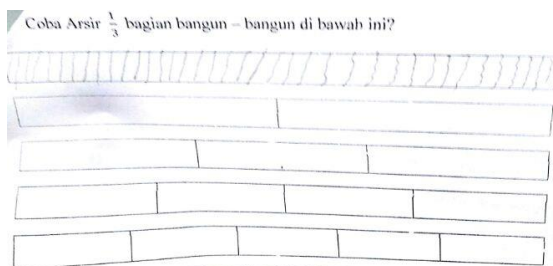 Coba Arsir 1/3 bagian bangun – bangun di bawah ini?